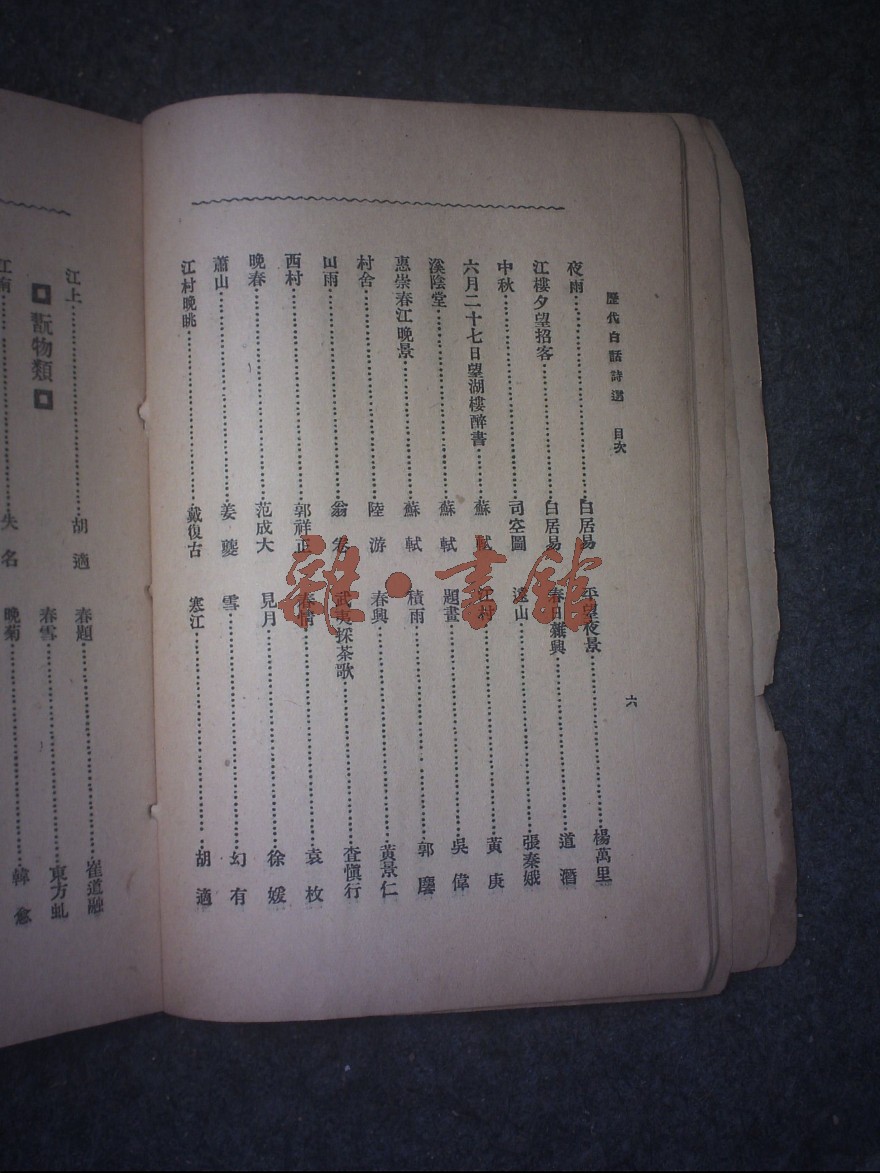 歷代白話詩選 目次 六
夜雨……白居易 平望夜景……楊萬里
江樓夕望招客……白居易 春日雜興……道潛
中秋……司空圖 遠山……張秦娥
六月二十七日望湖樓醉書……蘇軾 江村……黃庚
溪陰堂……蘇軾 題畫……吳偉
惠崇春江晚景……蘇軾 積雨……郭麐
村舍……陸游 春興……黃景仁
山雨……翁卷 武夷採茶歌……查慎行
西村……郭祥正 春情……袁枚
晚春……范成大 見月……徐媛
蕭山……姜夔 雪……幻有
江村晚眺……戴復古 寒江……胡適
江上……胡適 春題……崔道融
翫物類 春雪……東方虬
江南……失名 晚菊……韓愈
雜·書館